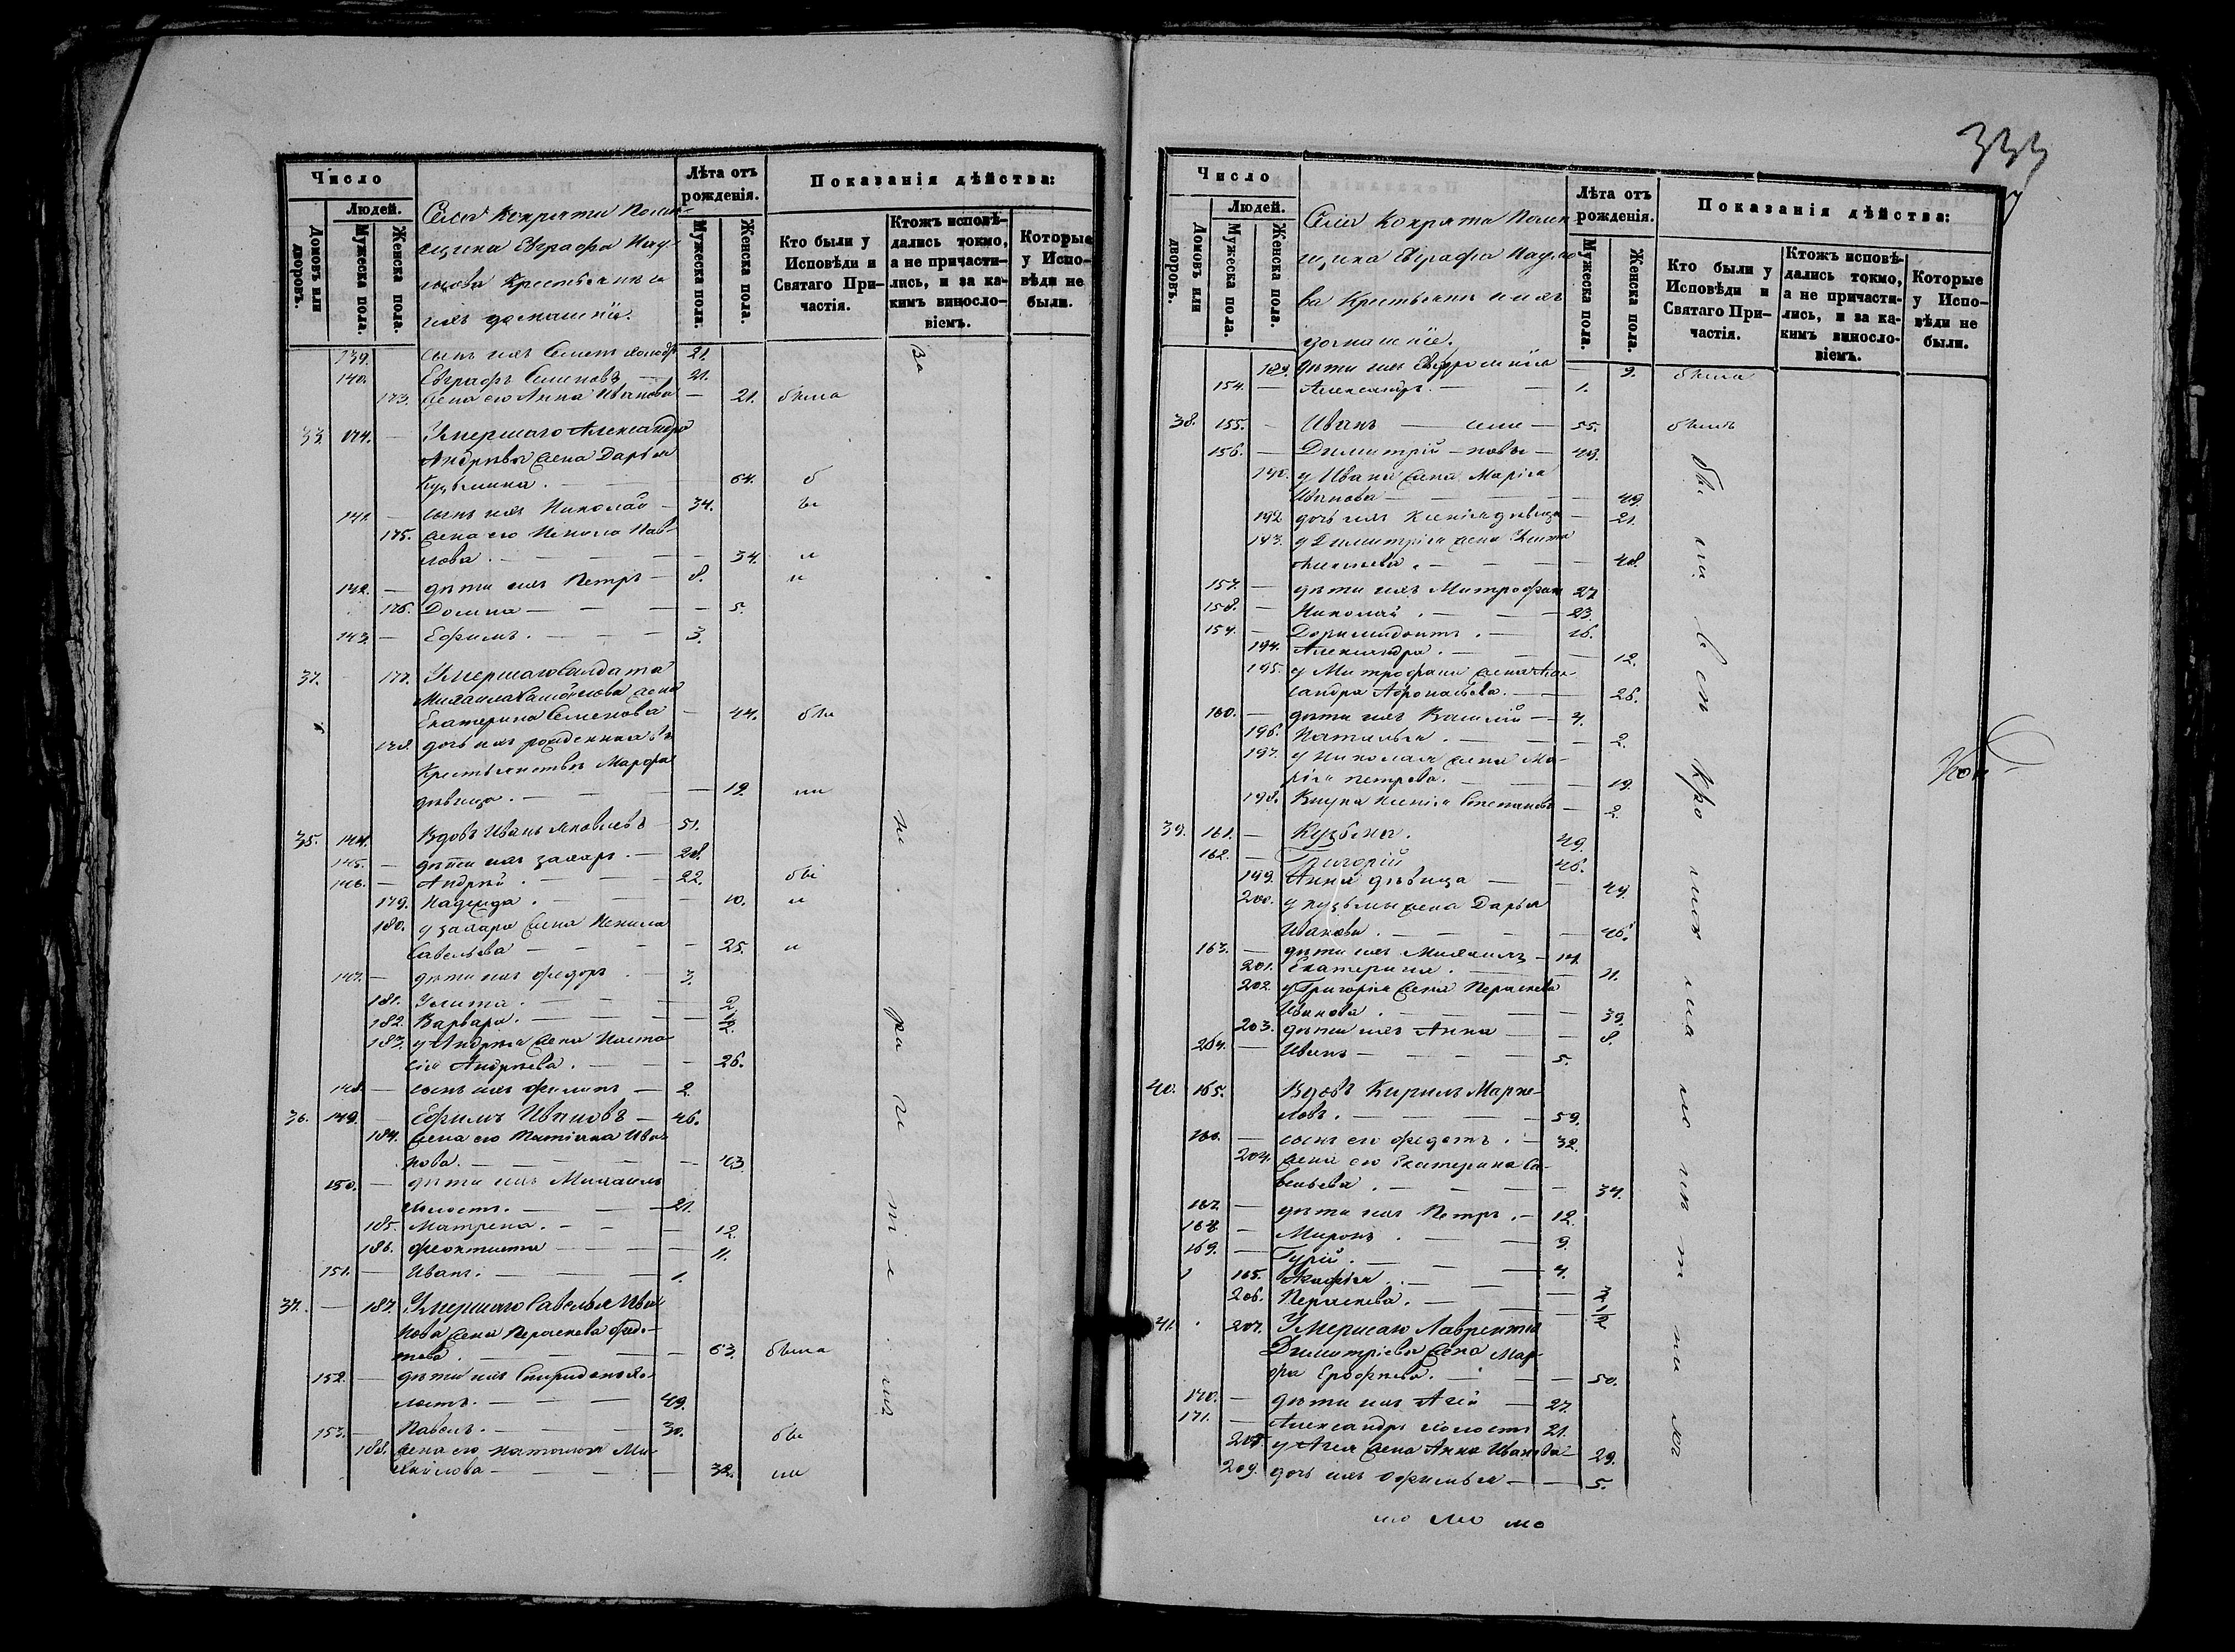 Число
Людей.
Домовъ или дворовъ.
Мужеска пола.
Женска пола.
Села Кокряти Помѣ-
щика Евграфа Нау-
мова Крестьяне и
ихъ домашніе.
Лѣта отъ рожденія.
Мужеска пола.
Женска пола.
Показанія дѣйства:
Кто были у Исповѣди и Святаго При-частія.
Ктожъ исповѣ-дались токмо, а не причасти-лись, и за ка-кимъ винословіемъ.
Которые у Испо-вѣди не были.
139. сынъ ихъ 21.
140. Евграфъ Семеновъ — 21.
173. жена его Анна Иванова — 21. была
33. 174. — Умершаго Александра
Андреева жена Дарья
Кузьмина. 64.
141. — сынъ ихъ Николай — 34.
175. жена его Пав-
лова. — 34.
142. — дѣти ихъ Петръ — 8.
176. Домна — 5.
143. — Ефимъ. — 3.
34. 177. Умершаго Салдата
Михаила жена
Екатерина Семенова — 44.
178. дочь ихъ рожденная въ
Крестьянствѣ Марфа
дѣвица. — 19.
35. 144. Вдовъ Иванъ Яковлевъ 51.
145. — дѣти ихъ Захаръ. — 28.
146. — Андрей. — 22.
179. Надежда. — 10.
180. у Захара жена
Савельева — 25.
147. — дѣти ихъ Федоръ. — 3.
181. Улита. — 2.
182. Варвара. — 1/2.
183. у Андрея жена Наста-
сія Андреева. — 26.
148. — сынъ ихъ Филипъ — 2.
36. 149. — Ефимъ Ивановъ — 46.
184. жена его Татіана Ива-
нова. — 43.
150. — дѣти ихъ Михаилъ
холостъ. — 21.
185. Матрена. — 12.
186. Феоктиста — 11.
151. — Иванъ. — 1.
37. — 187. Умершаго Савелья Ива-
нова жена Параскева Федо-
това. — 63. была
152. — дѣти ихъ Спиридонъ хо-
лостъ. — 49.
153. — Павелъ. — 30.
188. жена его Наталья Ми-
хайлова — 32.
333
Число
Людей.
Домовъ или дворовъ.
Мужеска пола.
Женска пола.
Села Кокряти Помѣ-
щика Евграфа Наумо-
ва Крестьяне и ихъ
домашніе.
Лѣта отъ рожденія.
Мужеска пола.
Женска пола.
Показанія дѣйства:
Кто были у Исповѣди и Святаго При-частія.
Ктожъ исповѣ-дались токмо, а не причасти-лись, и за ка-кимъ винословіемъ.
Которые у Испо-вѣди не были.
189. дѣти ихъ Евфросинія — 9. была
154. — Александръ. — 1.
38. 155. — Иванъ — 55. былъ
156. — Димитрій — 49.
190. у Ивана жена Марія
Иванова — 49.
192. дочь ихъ Ксенія дѣвица — 21.
193. у Димитрія жена Улита
48.
157. — дѣти ихъ Митрофанъ 27
158. — Николай. — 23.
159. — Доримидонтъ. — 16.
194. Александра. — 12.
195. у Митрофана жена Алек-
сандра Афонасьева. — 26.
160. — дѣти ихъ Василій — 4.
196. Наталья. — 2.
197. у Николая жена Ма-
рія Петрова. — 19.
198. Внука Ксенія Степанова — 2.
39. 161. — Кузьма. 49.
162. — Григорій 46.
199. Анна дѣвица — 44.
200. у Кузьмы жена Дарья
Иванова. — 46.
163. — дѣти ихъ Михаилъ — 14.
201. Екатерина. — 11.
202. у Григорія жена Параскева
Иванова. — 39.
203. дѣти ихъ Анна — 8.
264. — Иванъ — 5.
40. 165. Вдовъ Кирилъ Марке-
ловъ. — 59.
166. — сынъ его Федотъ. — 32.
204. жена его Екатерина Са-
вельева. — 34.
167. — дѣти ихъ Петръ. — 12.
168. — Миронъ. — 9.
169. — Гурій. — 4.
205. — 3
206. Параскева. — 1/2
41. 207. Умершаго Лаврентія
Димитріева жена Мар-
фа Ерофеева. — 50.
170. — дѣти ихъ Агей — 27.
171. — Александръ холостъ 21.
208. у Агея жена Анна Иванова — 29.
209. дочь ихъ Офимья — 5.